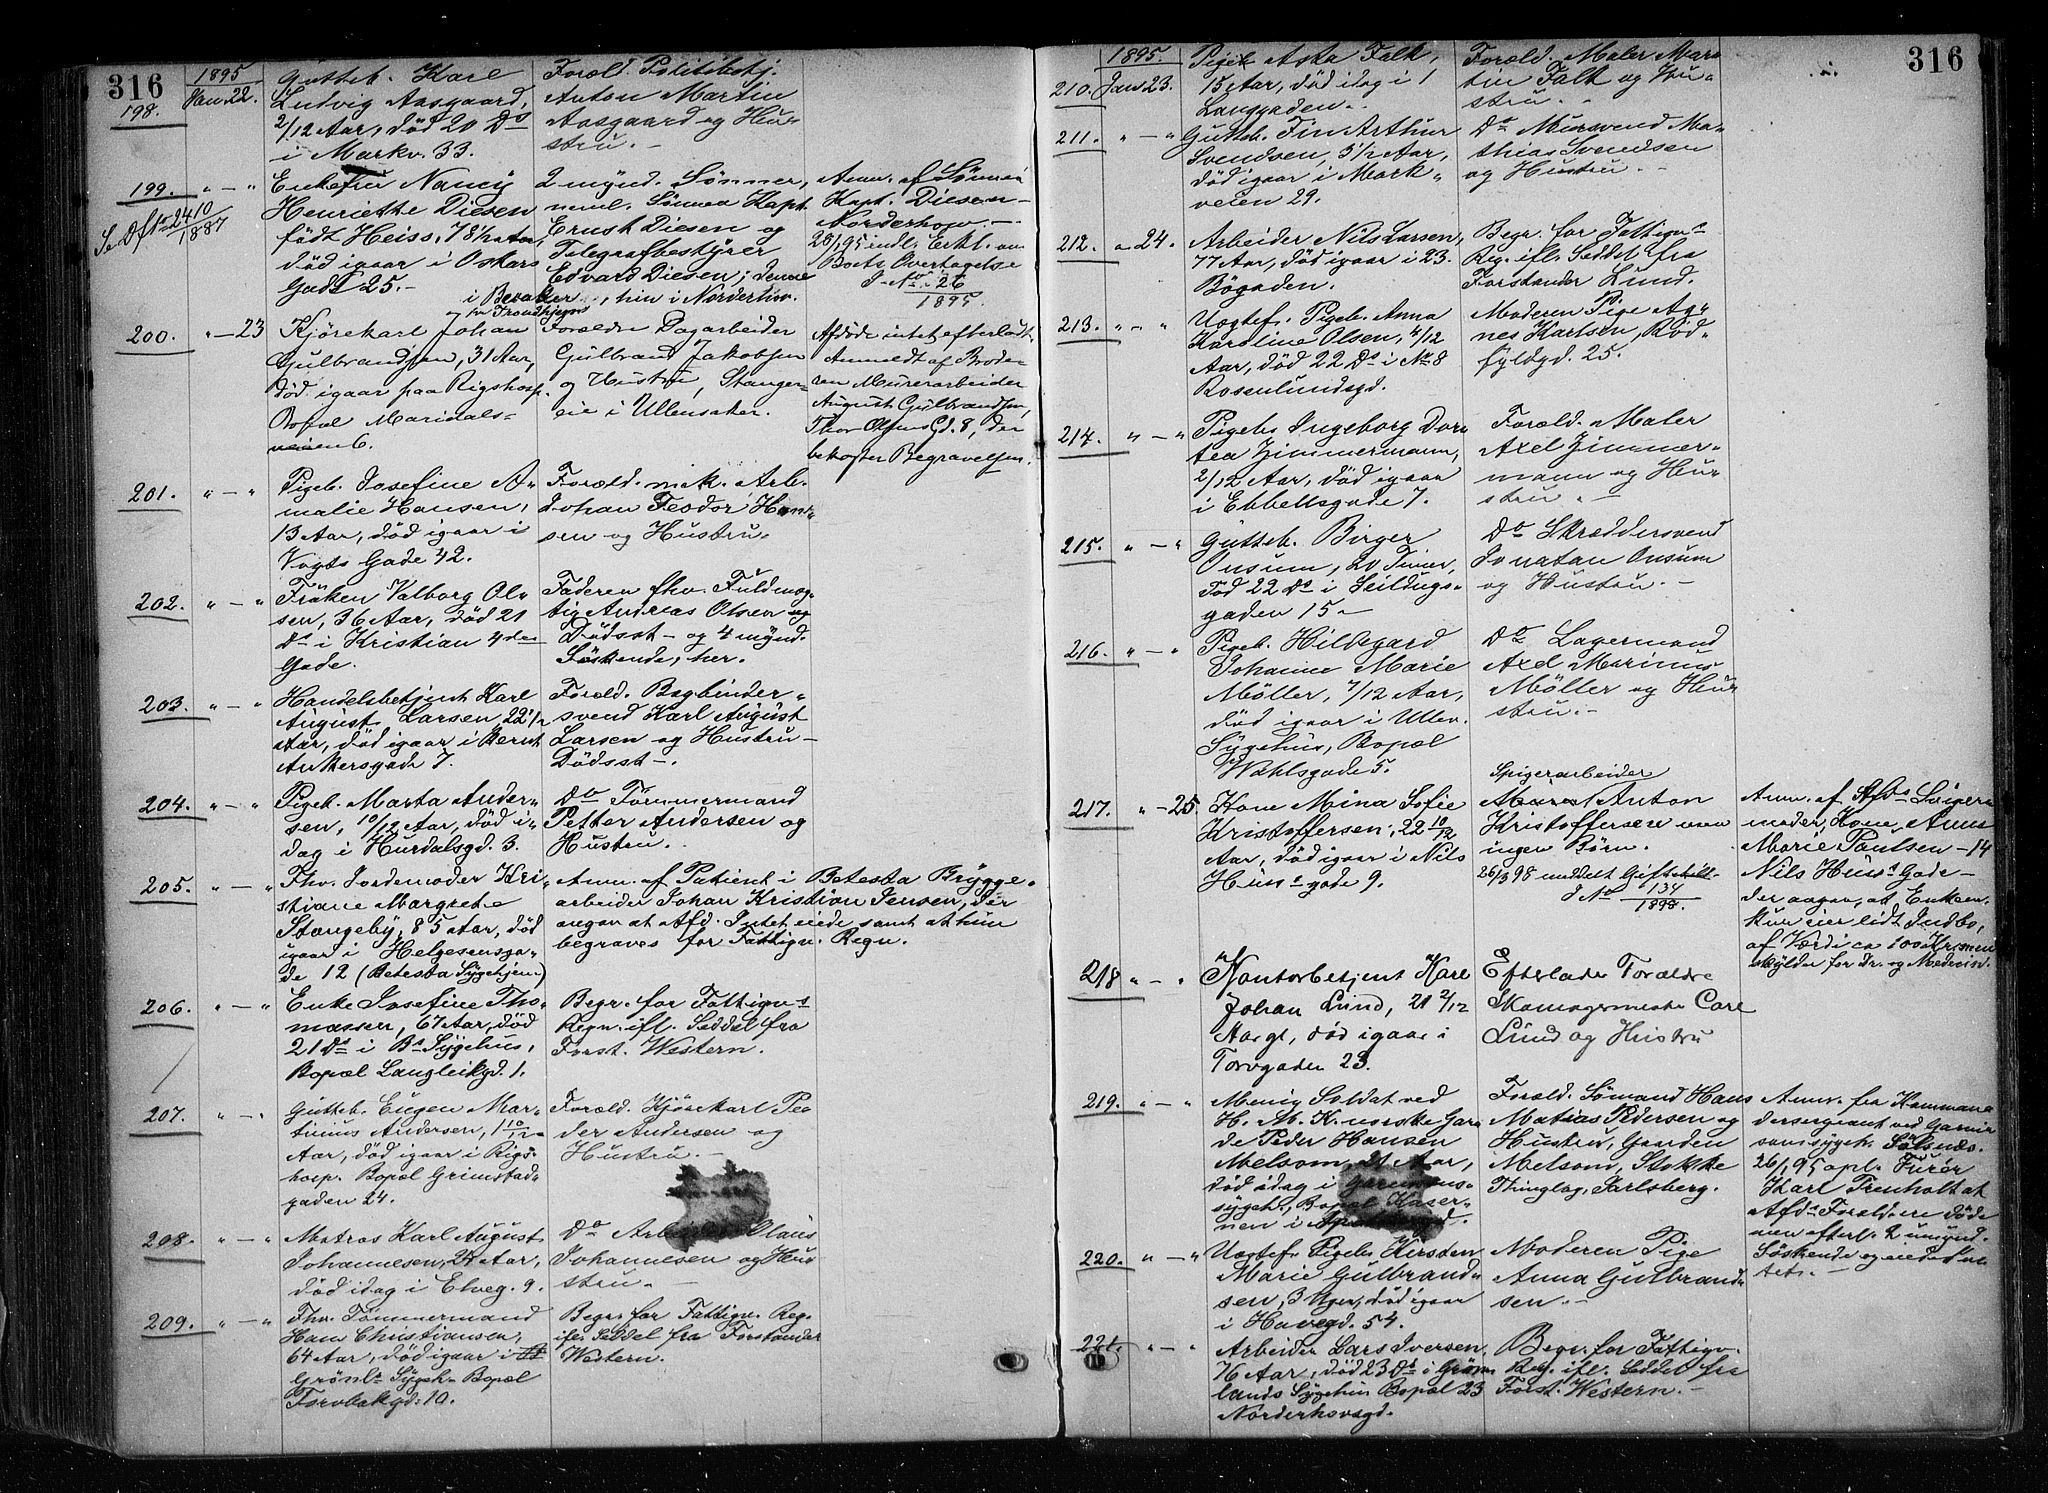 316
1895
198. Jan. 22.
Gutteb. Karl
Ludvig Aasgaard,
2/12 Aar, död 20 Ds
i Markv. 33.
Foræld. Politibetj.
Anton Martin
Aasgaard og Hu-
stru. -
199. " - "
Se Dfto 2410
1887
Enkefru Nancy
Henriette Diesen
födt Heiss, 78 1/2 Aar,
död igaar i Oskars
Gade 25. -
2 mynd. Sønner,
neml. Sønnen Kapt.
Ernst Diesen og
Telegrafbestyrer
Edvard Diesen; denne
i Throndhjem, hin i Norderhov.
Anm. af Sønnen
Kapt. Diesen -
Norderhov. -
28/1 95 indl. Erkl. om
Boets Overtagelse
J. No 26
1895.
200. " - 23
Kjörekarl Johan
Gulbrandsen, 31 Aar,
död igaar paa Rigshosp.
Bopæl Maridals-
veien 6.
Forældre Dagarbeider
Gulbrand Jakobsen
og Hustru, Stanger-
eie i Ullensaker.
Afdöde intet efterladt.
Anmeldt af Brode-
ren Murerarbeider
August Gulbrandsen,
Thor Olsens Gd. 8, der
bekoster Begravelsen.
201. " - "
Pigeb. Josefine A-
malie Hansen,
13 Aar, död igaar i
Vogts Gade 42.
Foræld. mek. Arb.
Johan Feodor Han-
sen og Hustru.
202. " - "
Fröken Valborg Ol-
sen, 36 Aar, död 21
Ds i Kristian 4des
Gade.
Faderen fhv. Fuldmæg-
tig Andreas Olsen og
Dödsst- og 4 mynd.
Söskende, her.
203. " - "
Handelsbetjent Karl
August Larsen 22 1/2
Aar, död igaar i Bernt
Ankersgade 7.
Foræld. Bogbinder-
svend Karl August
Larsen og Hustru -
Dödsst-.
204. " - "
Pigeb. Marta Ander-
sen, 10/12 Aar, död i-
dag i Hurdalsgd. 3.
Do Tömmermand
Petter Andersen og
Hustru.
205. " - "
Fhv. Jordemoder Kri-
stiane Margrete
Stangeby, 85 Aar, död
igaar i Helgesensga-
de 12 (Betesta Sygehjem)
Anm. af Patient i Betesta Brygge-
arbeider Johan Kristian Jensen, der
angav at Afd. Intet eiede samt at hun
begraves for Fattigv. Regn.
206. " - "
Enke Josefine Tho-
massen, 67 Aar, död
21 Ds i Bs Sygehus,
Bopæl Langleikgd. 1.
Begr. for Fattigvs
Regn. ifl. Seddel fra
Forst. Western.
207. " - "
Gutteb. Eugen Mar-
tinius Andersen, 1 10/12
Aar, död igaar i Rigs-
hosp. Bopæl Grimstad-
gaden 24.
Foræld. Kjörekarl Pe-
der Andersen og
Hustru. -
208. " - "
Matros Karl August
Johannesen, 24 Aar,
död idag i Elveg. 9.
Do Arbeider Olaus
Johannesen og Hu-
stru. -
209. " - "
Fhv. Tömmermand
Hans Christiansen,
64 Aar, död igaar i
Grönls Sygeh. Bopæl
Torvbakgd. 10.
Begr. for Fattigv. Reg.
ifl. Seddel fra Forstander
Western.
316
1895.
210. Jan 23.
Pige Asta Falk,
15 Aar, död idag i 1
Langgaden. -
Foræld. Maler Mar-
tin Falk og Hu-
stru. -
211. " - "
Gutteb. Fin Arthur
Svendsen, 5 1/2 Aar,
död igaar i Mark-
veien 29.
Do Mursvend Ma-
thias Svendsen
og Hustru. -
212. " 24.
Arbeider Nils Larsen,
77 Aar, död igaar i 23.
Bögaden.
Begr. for Fattigvs
Reg. ifl. Seddel fra
Forstander Lund.
213. " - "
Uægtef. Pigeb. Anna
Karoline Olsen, 4/12
Aar, död 22 Ds i No 8
Rosenlundsgd.
Moderen Pige Ag-
nes Karlsen, Röd-
fyldgd. 25.
214. " - "
Pigebs Ingeborg Doro-
tea Zimmermann,
2/12 Aar, död igaar
i Ebbellsgade 7.
Foræld. Maler
Axel Zimmer-
mann og Hu-
stru. -
215. " - "
Gutteb. Birger
Onsum, 20 Timer,
död 22 Ds i Seildugs-
gaden 15 -
Do Skræddersvend
Jonatan Onsum
og Hustru. -
216. " - "
Pigeb. Hildegard
Johanne Marie
Möller, 7/12 Aar,
död igaar i Ullev.
Sygehus, Bopæl
Wahlsgade 5.
Do Lagermand
Axel Marinus
Möller og Hu-
stru. -
217. " - 25.
Kone Mina Sofie
Kristoffersen, 22 10/12
Aar, död igaar i Nils
Huus gade 9.
Spigerarbeider
Anton
Kristoffersen men
ingen Börn.
26/3 98 meddelt Giftetill.
J No 134
1898.
Anm. af Afds Svigers
moder, Kone Anne
Marie Paulsen - 14
Nils Huus Gade -
der angav, at Enkem.
kun eier lidt Indbo,
af Værdi ca 100 Kr. men
skylder for Dr. og Medicin.
218 " - "
Kontorbetjent Karl
Johan Lund, 21 2/12
Aargl, död igaar i
Torvgaden 23.
Efterlader Forældre
Skomagermester Carl
Lund og Hustru
219. " - "
Menig Soldat ved
H. M. K. norske Gar-
de Peder Hansen
Melsom, 21 Aar,
död idag i Garnisons-
sygeh., Bopæl Kaser-
nen i
Foræld. Sömand Hans
Matias Pedersen og
Hustru, Gaarden
Melsom, Stokke
Thinglag, Jarlsberg.
Anm. fra Komman-
dersergeant ved Garni-
sonssygeh. Solsnæs.
26/1 95 opl. Furér
Karl Trenholt at
Afds Foræld. ere döde
men efterl. 2 umynd.
Söskende og eiede In-
tet. -
220. " - "
Uægtef. Pigeb. Kirsten
Marie Gulbrand-
sen, 3 Uger, död igaar
i Havegd. 54.
Moderen Pige
Anna Gulbrand-
sen. -
221. " - "
Arbeider Lars Iversen,
76 Aar, död 23 Ds i Grön-
lands Sygehus Bopæl 23
Norderhovsgd.
Begr. for Fattigv.
Reg. ifl. Seddel fra
Forst. Western. -